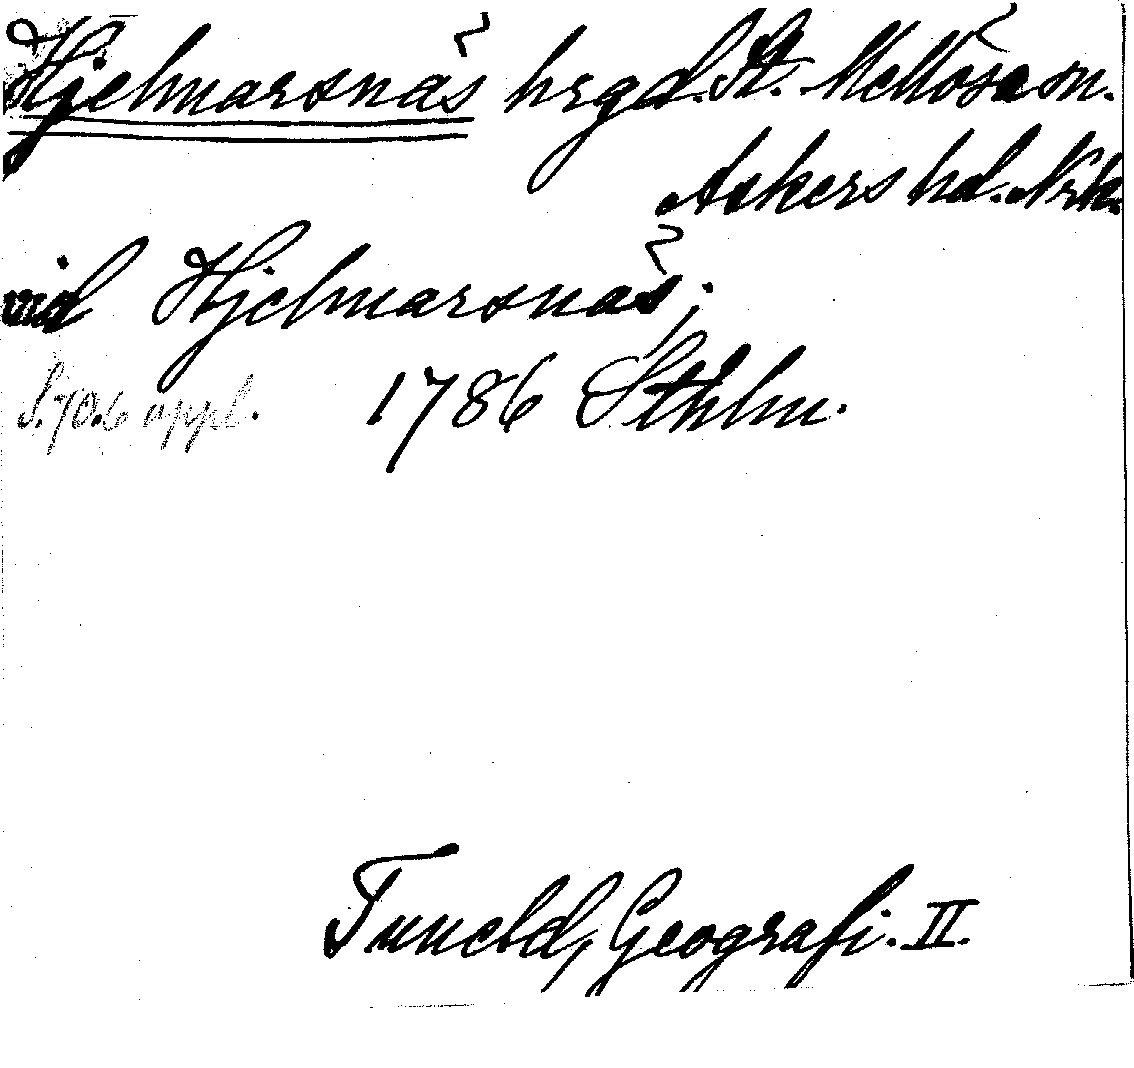 Hjelmarsnäs hrgd. St. Mellösa sn.
Askers hd. Nrk.
vid Hjelmarsnäs;
S. 70. 6 uppl. 1786 Sthlm.
Tuneld, Geografi. II.